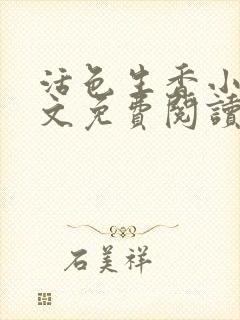 活色生香小
文免費閱讀
石美祥